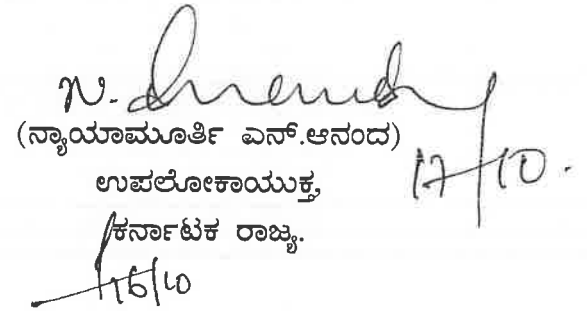 N. Ananda
(ನ್ಯಾಯಾಮೂರ್ತಿ ಎನ್.ಆನಂದ)
17/10.
ಉಪಲೋಕಾಯುಕ್ತ,
ಕರ್ನಾಟಕ ರಾಜ್ಯ.
16/10